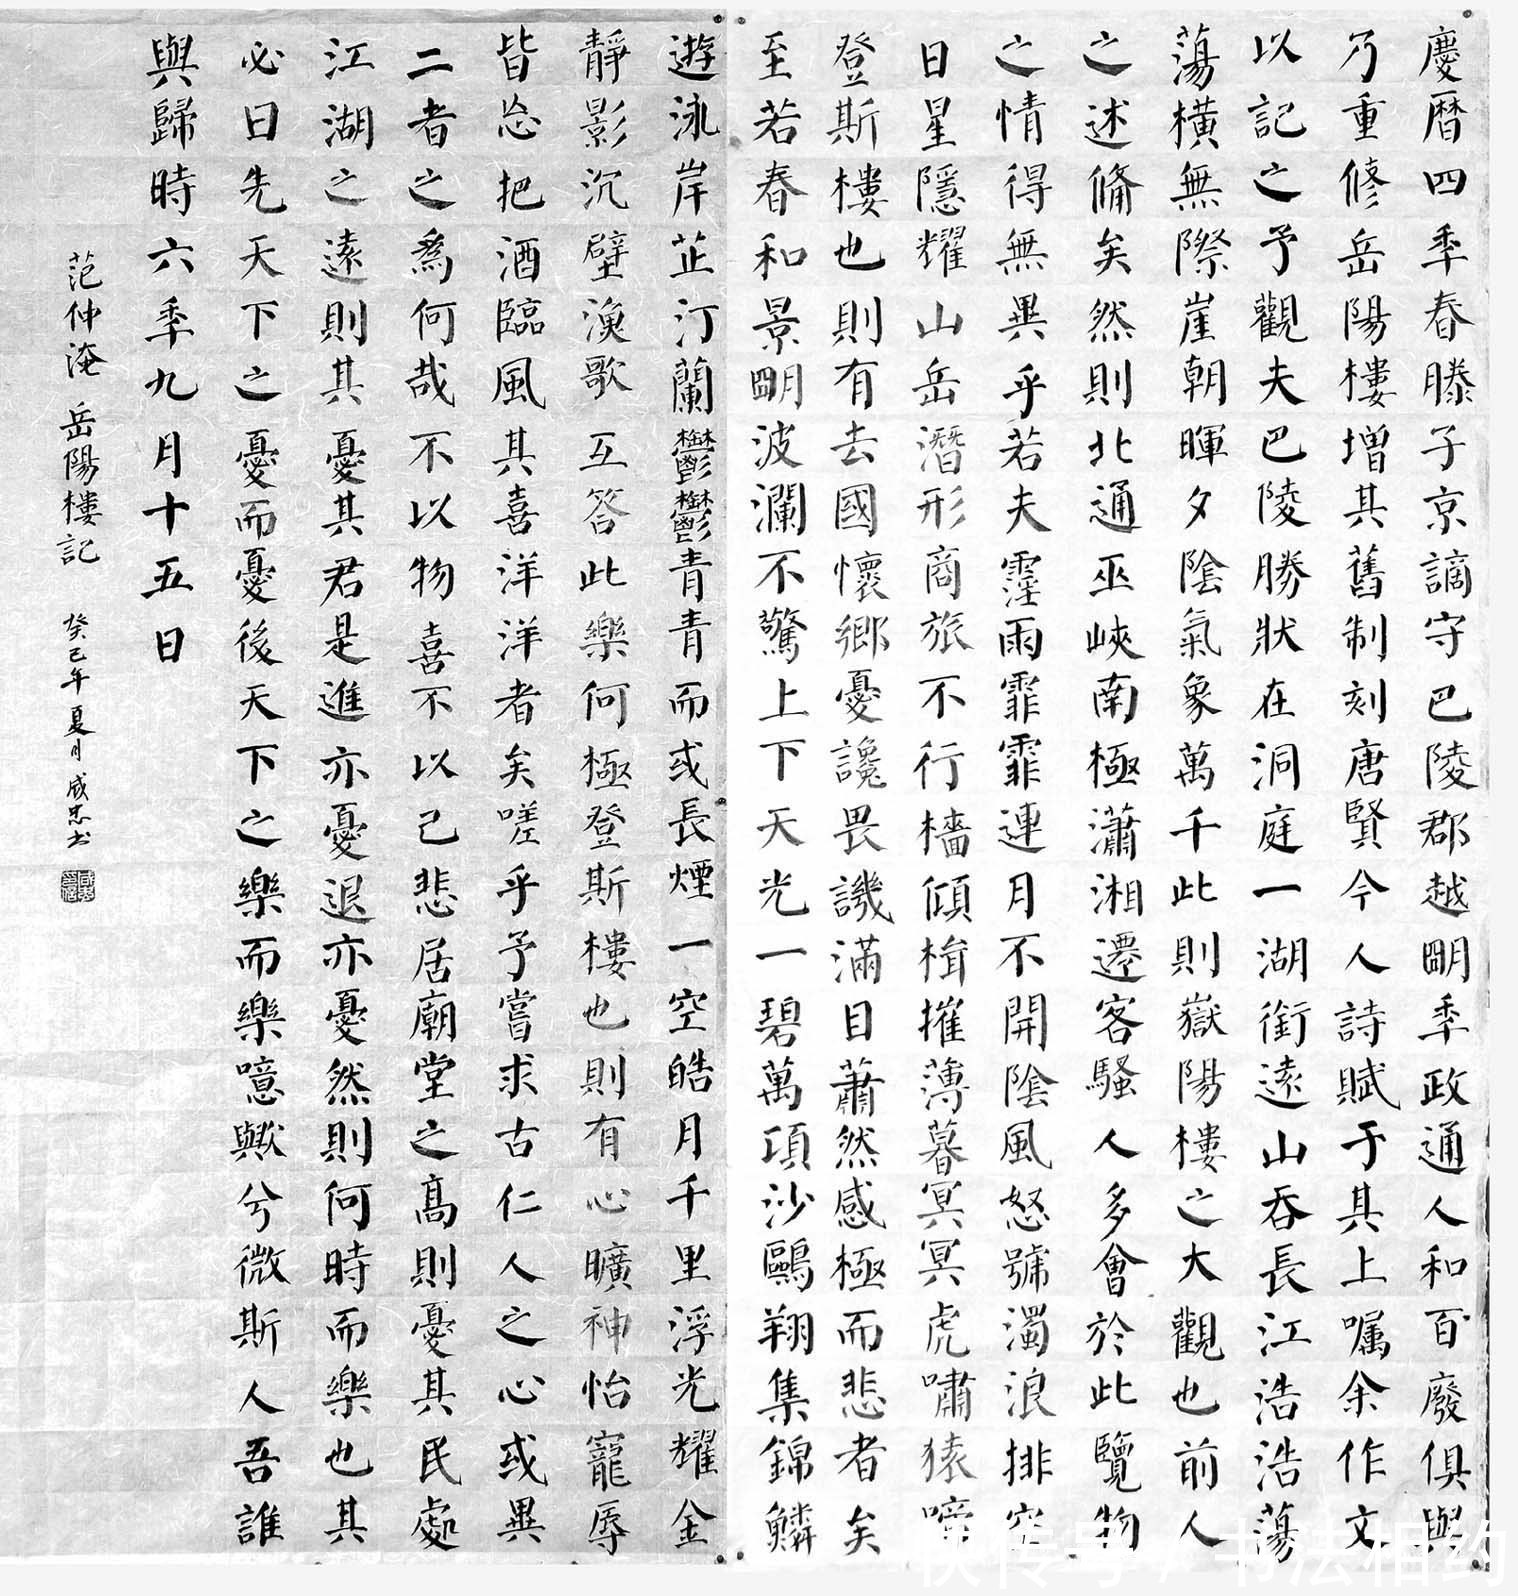 慶曆四季春滕子京謫守巴陵郡越朙季政通人和百廢俱與
乃重修岳陽樓增其舊制刻唐賢今人詩賦于其上囑余作文
以記之予觀夫巴陵勝狀在洞庭一湖銜遠山吞長江浩浩蕩
蕩橫無際崖朝暉夕陰氣象萬千此則嶽陽樓之大觀也前人
之述備矣然則北通巫峽南極瀟湘遷客騷人多會於此覽物
之情得無異乎若夫霪雨霏霏連月不開陰風怒號濁浪排空
日星隱耀山岳潛形商旅不行檣傾楫摧薄暮冥冥虎嘯猿啼
登斯樓也則有去國懷鄉憂讒畏譏滿目蕭然感極而悲者矣
至若春和景朙波瀾不驚上下天光一碧萬項沙鷗翔集錦鱗
遊泳岸芷汀蘭鬱鬱青青而或長煙一空皓月千里浮光耀金
靜影沉壁漁歌互答此樂何極登斯樓也則有心曠神怡寵辱
皆忘把酒臨風其喜洋洋者矣嗟乎予嘗求古仁人之心或異
二者之為何哉不以物喜不以己悲居廟堂之高則憂其民處
江湖之遠則其憂其君是進亦憂退亦憂然則何時而樂也其
必曰先天下之憂而憂後天下之樂而樂噫歟兮微斯人吾誰
與歸時六季九月十五日
范仲淹 岳陽樓記 癸巳年夏月成忠书
快传号 / 书法相约